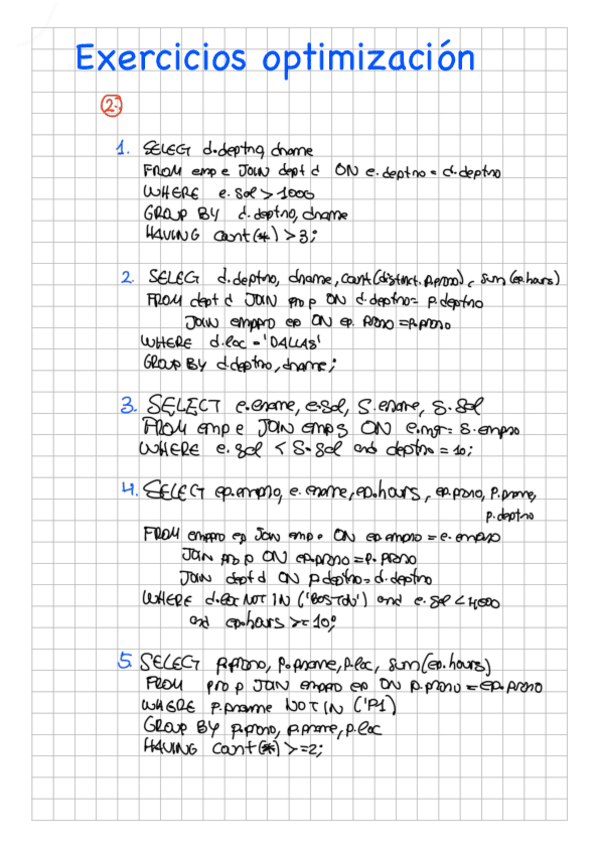 Exercicios optimización
2.
1. SELECT d.deptno, dname
FROM emp e JOIN dept d ON e.deptno = d.deptno
WHERE e.sal > 1000
GROUP BY d.deptno, dname
HAVING count(*) > 3;
2. SELECT d.deptno, dname, count(distinct p.prono), sum(ep.hours)
FROM dept d JOIN pro p ON d.deptno = p.deptno
JOIN emppro ep ON ep.prono = p.prono
WHERE d.loc = 'DALLAS'
GROUP BY d.deptno, dname;
3. SELECT e.ename, e.sal, s.ename, s.sal
FROM emp e JOIN emp s ON e.mgr = s.empno
WHERE e.sal < s.sal and deptno = 10;
4. SELECT ep.empno, e.ename, ep.hours, ep.prono, p.pname,
p.deptno
FROM emppro ep JOIN emp e ON ep.empno = e.empno
JOIN pro p ON ep.prono = p.prono
JOIN dept d ON p.deptno = d.deptno
WHERE d.loc NOT IN ('BOSTON') and e.sal < 4000
and ep.hours >= 10;
5. SELECT p.prono, p.pname, p.loc, sum(ep.hours)
FROM pro p JOIN emppro ep ON p.prono = ep.prono
WHERE p.pname NOT IN ('P1)
GROUP BY p.prono, p.pname, p.loc
HAVING count(*) >= 2;